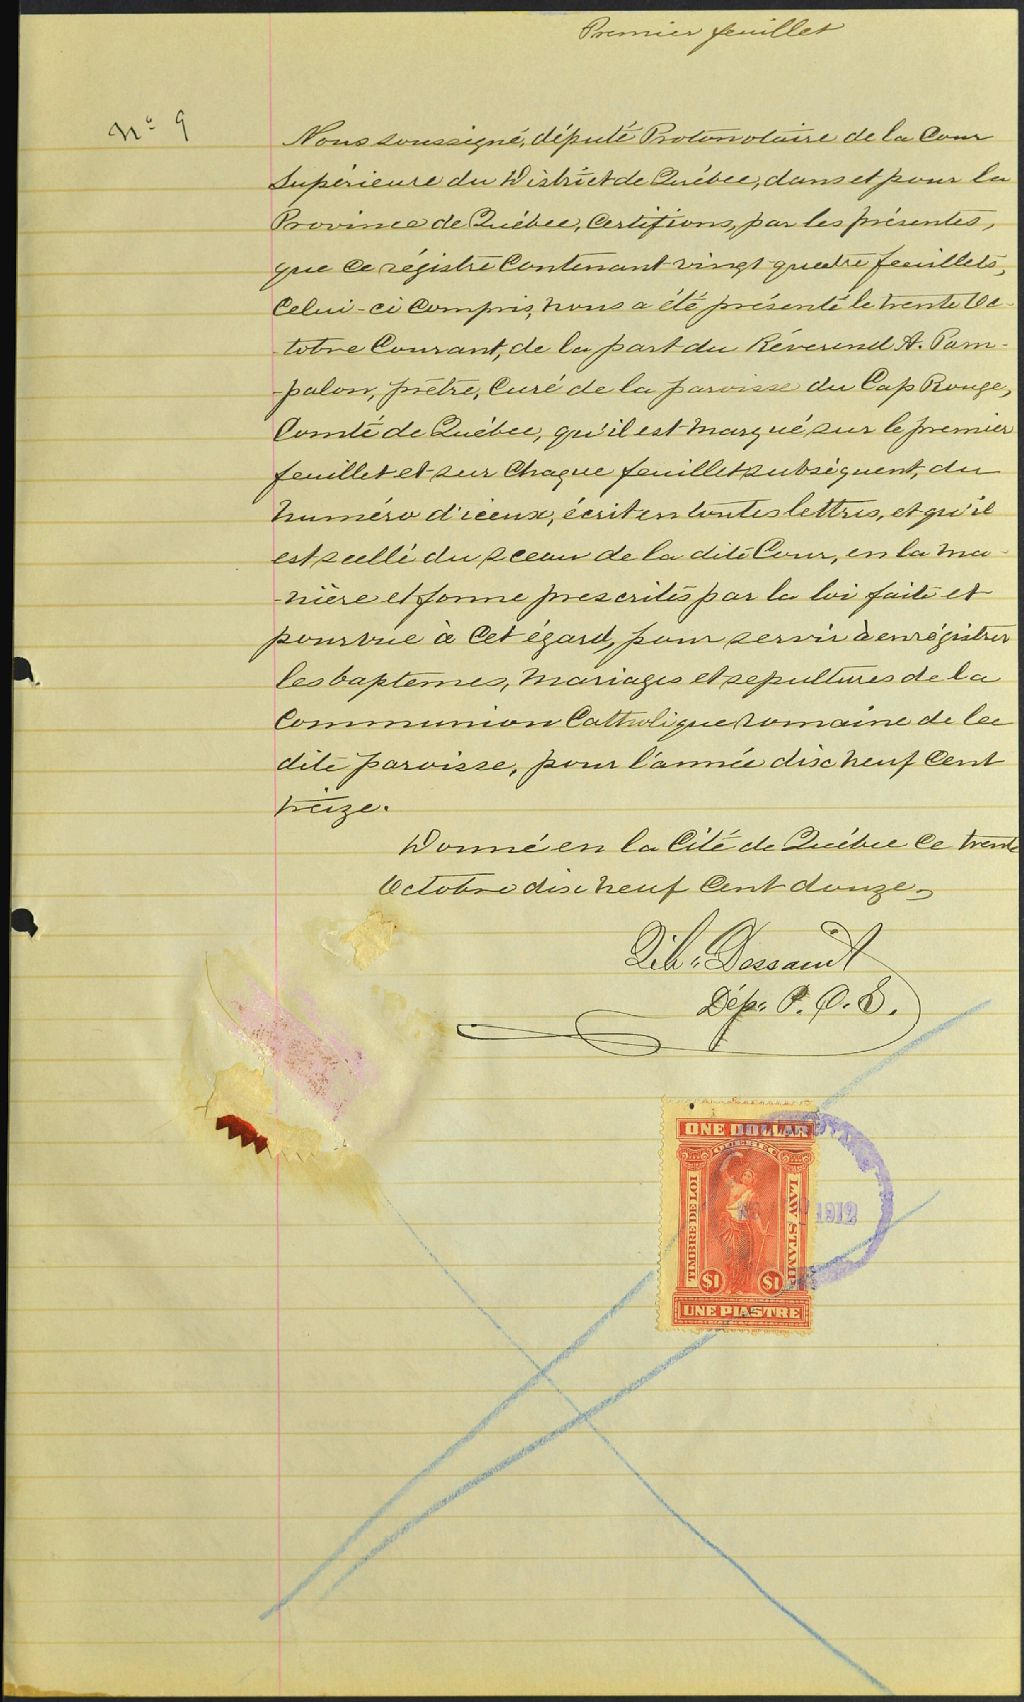 Premier feuillet
No 9
Nous soussigné, député Protonotaire de la Cour
Supérieure du District de Québec, dans et pour la
Province de Québec, Certifions, par les présentes,
que ce régistre Contenant vingt-quatre feuillets,
Celui-ci Compris, nous a été présenté le trente Oc-
-tobre Courant, de la part du Révérend A. Pam-
-palon, prêtre, Curé de la paroisse du Cap Rouge,
Comté de Québec, qu'il est marqué sur le premier
feuillet et sur Chaque feuillet subséquent, du
numéro d'iceux, écrit en toutes lettres, et qu'il
est scellé du sceau de la dite Cour, en la ma-
-nière et forme prescrites par la loi faite et
pourvue à cet égard, pour servir à enrégistrer
les baptemes, mariages et sepultures de la
Communion Catholique romaine de la
dite paroisse, pour l'année dix neuf Cent
treize.
Donné en la Cité de Québec Ce trente
Octobre dix neuf Cent douze,
Dessault
Dép. P. C. S.
ONE DOLLAR
QUEBEC
TIMBRE DE LOI
LAW STAMP
1912
$1 $1
UNE PIASTRE